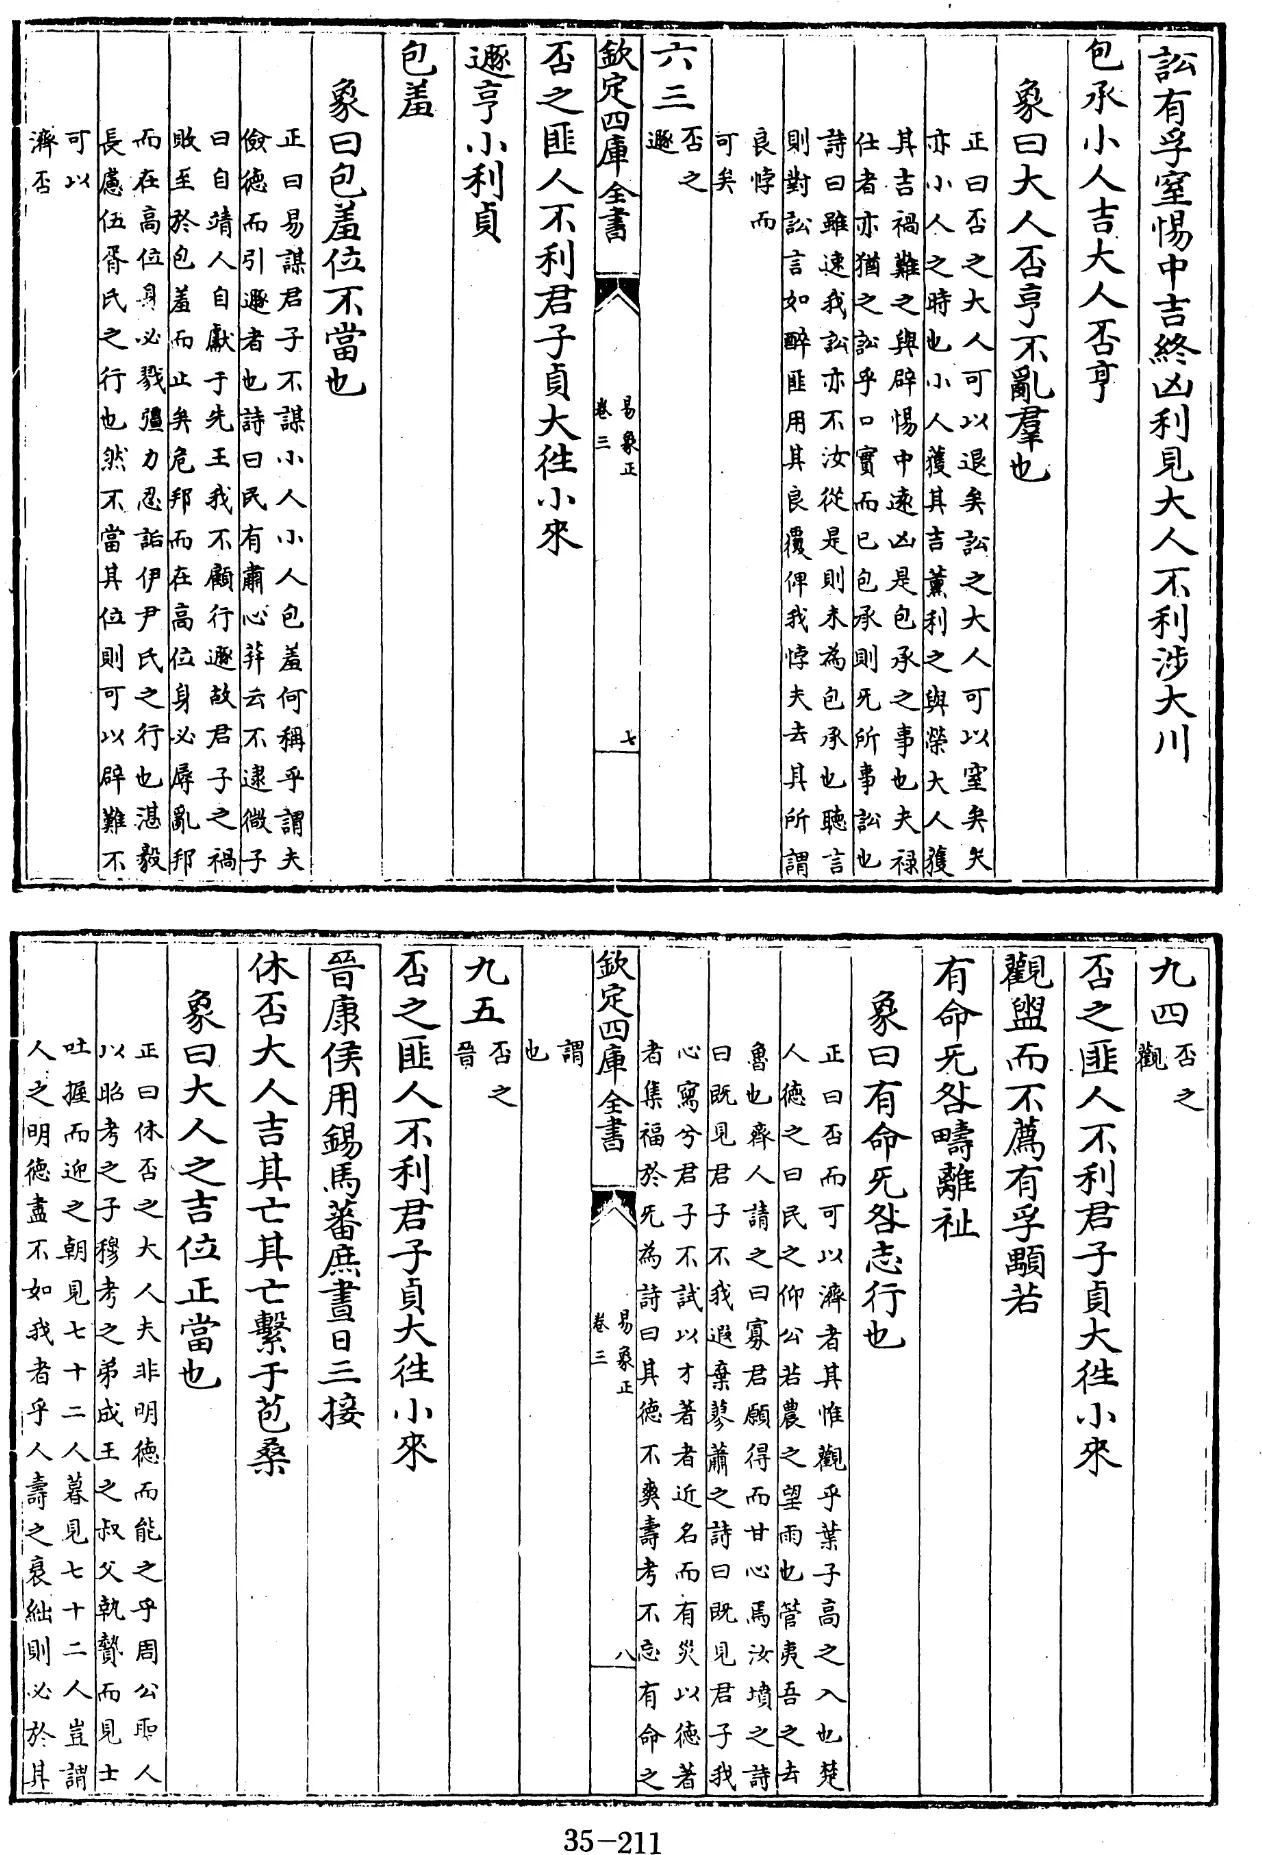 訟有孚窒惕中吉終凶利見大人不利涉大川
包承小人吉大人否亨
象曰大人否亨不亂羣也
正曰否之大人可以退矣訟之大人可以窒矣矢
亦小人之時也小人獲其吉薰利之與榮大人獲
其吉禍難之與辟惕中遠凶是包承之事也夫祿
仕者亦猶之訟乎口實而已包承則旡所事訟也
詩曰雖速我訟亦不汝從是則未為包承也聽言
則對訟言如醉匪用其良覆俾我悖夫去其所謂
良悖而
可矣
六三否之
遯
欽定四庫全書
易象正
卷三
七
否之匪人不利君子貞大徃小來
遯亨小利貞
包羞
象曰包羞位不當也
正曰易謀君子不謀小人小人包羞何稱乎謂夫
儉德而引遯者也詩曰民有肅心荓云不逮微子
曰自靖人自獻于先王我不顧行遯故君子之禍
敗至於包羞而止矣危邦而在高位身必辱亂邦
而在高位身必戮彊力忍詬伊尹氏之行也湛毅
長慮伍胥氏之行也然不當其位則可以辟難不
可以
濟否
九四否之
觀
否之匪人不利君子貞大徃小來
觀盥而不薦有孚顒若
有命旡咎疇離祉
象曰有命旡咎志行也
正曰否而可以濟者其惟觀乎葉子高之入也楚
人德之曰民之仰公若農之望雨也管夷吾之去
魯也齊人請之曰寡君願得而甘心焉汝墳之詩
曰既見君子不我遐棄蓼蕭之詩曰既見君子我
心寫兮君子不試以才著者近名而有災以德著
者集福於旡為詩曰其德不爽壽考不忘有命之
欽定四庫全書
易象正
卷三
八
謂
也
九五否之
晉
否之匪人不利君子貞大徃小來
晉康侯用錫馬蕃庶晝日三接
休否大人吉其亡其亡繫于苞桑
象曰大人之吉位正當也
正曰休否之大人夫非明德而能之乎周公聖人
以昭考之子穆考之弟成王之叔父執贄而見士
吐握而迎之朝見七十二人暮見七十二人豈謂
人之明德盡不如我者乎人壽之衰絀則必於其
35-211